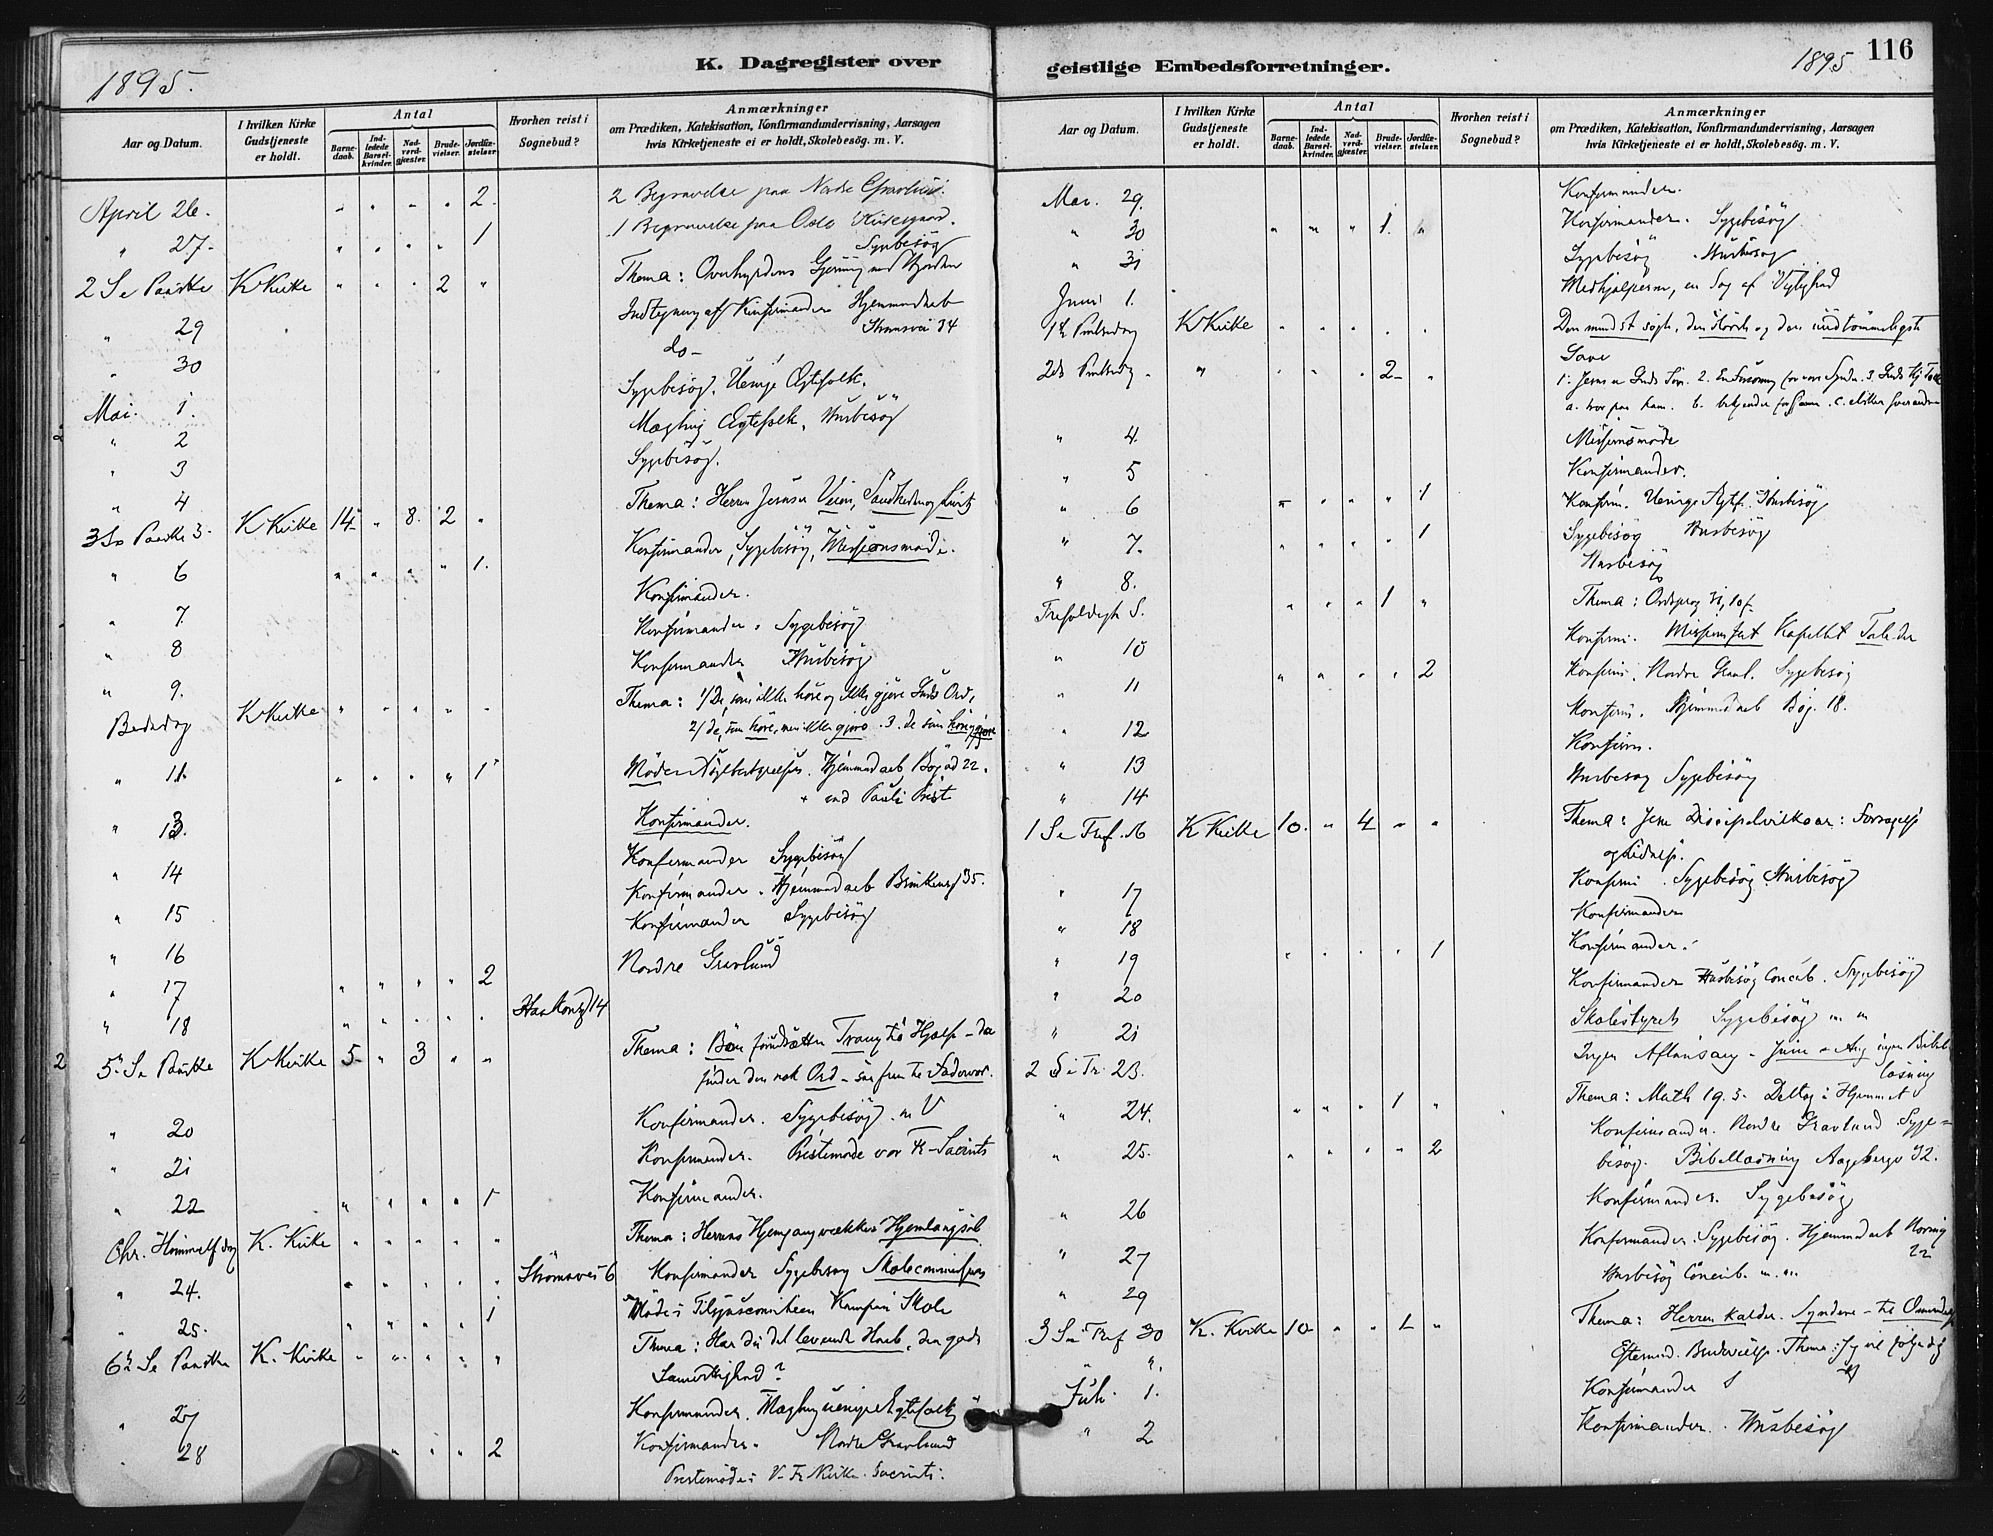 1895.
K. Dagregister over
Aar og Datum.
I hvilken Kirke Gudstjeneste er holdt.
Antal
Barne-daab.
Ind-ledede Barsel-kvinder.
Nad-verd-gjæster.
Brude-vielser.
Jordfæ-stelser.
Hvorhen reist i Sognebud?
Anmærkninger
om Prædiken, Katekisation, Konfirmandundervisning, Aarsagen
hvis Kirketjeneste ei er holdt, Skolebesög. m. V.
April 26. " " " " 2. 2 Begravelse paa Nordre Gravlund.
" 27. " " " " 1 1 Begravelse paa Oslo Kirkegaard.
Sygebesög
2 S e Paaske K Kirke " " " 2 " Thema: Overhyrdens Gjerning med Hjorden
" 29 Indtegning af Konfirmander Hjemmedaab
Strømsvei 34
" 30 do-
Mai. 1. Sygebesög. Uenige Ægtefolk.
" 2 Mægling Ægtefolk, Husbesög
" 3 Sygebesög.
" 4 Thema: Herren Jesus er Veien, Sandheden og Livet
3 S e Paaske 5. K Kirke 14 " 8. 2 "
" 6 " " " " 1. Konfirmander, Sygebesög, Missionsmöde.
" 7. Konfirmander.
" 8 Konfirmander. Sygebesög
" 9. Konfirmander Husbesög
Bededag K Kirke " " " " " Thema: 1/ De, som ikke höre og ikke gjøre Guds Ord,
2/ de, som höre, men ikke gjøre. 3. de som höre og gjøre
" 11. " " " " 1 Møde Hjemmedaab Bögad 22.
Konfirmander.
" 13.
" 14 Konfirmander Sygebesög
" 15 Konfirmander. Hjemmedaab 35.
" 16 Konfirmander Sygebesög
" 17 " " " " 2 Nordre Gravlund
" 18 " " " " " 14
5 S e Paaske K Kirke 5 " 3 " " Thema: Bön forudsætter Trang til Hjælp - da
finder den nok Ord - saa frem til Fadervor.
" 20 Konfirmander. Sygebesög. m V
" 21 Konfirmander. Prestemøde vor Fr-
" 22 " " " " 1 Konfirmander.
Chr. Himmelf dag K. Kirke " " " " " Thema: Herrens Hjemgang vækker Hjemlængsel
" 24. " " " " " Strömsvei 6 Konfirmander Sygebesög Skolecommission
" 25. " " " " 1 Møde i Kampen Skole
6 S e Paaske K. Kirke " " " " " Thema: Har du det levende Haab, den gode
Samvittighed?
" 27 Konfirmander. Mægling uenige Ægtefolk
" 28 " " " 2 Konfirmander. Nordre Gravlund
Prestemøde i V. Fr Kirke.
geistlige Embedsforretninger.
1895
116
Aar og Datum.
I hvilken Kirke Gudstjeneste er holdt.
Antal
Barne-daab.
Ind-ledede Barsel-kvinder.
Nad-verd-gjæster.
Brude-vielser.
Jordfæ-stelser.
Hvorhen reist i Sognebud?
Anmærkninger
om Prædiken, Katekisation, Konfirmandundervisning, Aarsagen
hvis Kirketjeneste ei er holdt, Skolebesög. m. V.
Mai. 29. Konfirmander.
" 30 " " " 1. " Konfirmander. Sygebesög
" 31 Sygebesög. Husbesög
Juni 1. en Sag af Vigtighed
1ste Pintsedag K Kirke " " " " " Den mindst søgte, den störste og den uudtømmeligste
Gave
2den Pintsedag " " " " 2 " 1. Jesus er Guds Søn. 2. En Forsoning for vore Synder. 3.
a. tror paa ham. b. bekjender ham. c. elsker hverandre
" 4. Missionsmøde
" 5 Konfirmander.
" 6 " " " " 1 Konfirm. Uenige Ægtef. Husbesög
" 7. " " " " 1 Sygebesög Husbesög
" 8. Husbesög
Trefoldigh S. " " " 1 " Thema: Ordsprog
" 10 Konfirm. Missionsfest Kapellet
" 11 " " " " 2 Konfirm. Nordre Gravl. Sygebesög
" 12 Konfirm. Hjemmedaab Bög. 18.
" 13 Konfirm.
" 14 Husbesög Sygebesög
1 S e Tref. 16 K Kirke 10. " 4 " " Thema: Jesu Discipelvilkaar: Forsagelse
og Lidelse.
" 17 Konfirm. Sygebesög Husbesög
" 18 Konfirmander
" 19 " " " " 1 Konfirmander.
" 20 Konfirmander Husbesög Sygebesög
" 21 Skolestyret Sygebesög m m
2 S e Tr. 23. Ingen Aftensang - Juni - Aug ingen Bibel-
læsning
" 24. " " " 1 " Thema: Math 19. 5. Deltog i Hjemmet
" 25. " " " " 2 Konfirmander. Nordre Gravlund Syge-
besög. Bibellæsning Aagebergv 32.
" 26 Konfirmander. Sygebesög
" 27 Konfirmander. Sygebesög. Hjemmedaab
22
" 29 Husbesög m. m.
3 S e Tref 30 K. Kirke 10 " " 1 " Thema: Herren kalder Syndere - til Omvendelse
" ". Eftermid. Brudevielse. Thema: Jeg vil følge dig
Juli. 1. Konfirmander
" 2 Konfirmander. Husbesög